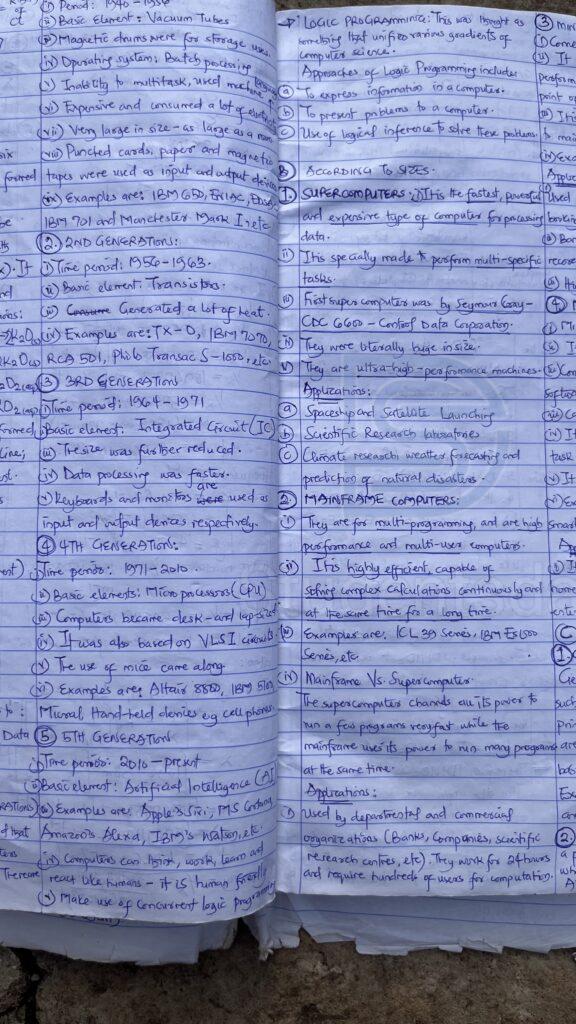 i) Period: 1940-1956
ii) Basic Element: Vacuum Tubes
iii) Magnetic drums were for storage uses.
iv) Operating system: Batch processing
v) Inability to multitask, used machine language
vi) Expensive and consumed a lot of electricity
vii) Very large in size - as large as a room
viii) Punched cards, paper and magnetic
tapes were used as input and output devices
ix) Examples are: IBM 650, ENIAC, EDSAC,
IBM 701 and Manchester Mark I, etc
2. 2ND GENERATIONS:
i) Time period: 1956-1963.
ii) Basic element: Transistors.
iii) Generated a lot of heat.
iv) Examples are: TX-0, IBM 7070,
RCA 501, Philo Transac S-1000, etc.
3 3RD GENERATIONS
i) Time period: 1964-1971
ii) Basic element: Integrated Circuit (IC)
iii) The size was further reduced.
iv) Data processing was faster.
v) Keyboards and monitors are used as
input and output devices respectively.
4 4TH GENERATION:
i) Time period: 1971-2010.
ii) Basic elements: Microprocessors (CPU)
iii) Computers became desk-and lap-sized
iv) It was also based on VLSI circuits
v) The use of mice came along
vi) Examples are: Altair 8800, IBM 5100,
Micral, Hand-held devices eg cell phones.
5 5TH GENERATION
i) Time periods: 2010-present
ii) Basic element: Artificial Intelligence (AI)
iii) Examples are: Apple's Siri, MS Cortana,
Amazon's Alexa, IBM's Watson, etc.
iv) Computers can think, work, learn and
react like humans - it is human friendly
v) Make use of concurrent logic programming
LOGIC PROGRAMMING: This was thought as
something that unifies various gradients of
computer science.
Approaches of Logic Programming include:
a To express information in a computer.
b To present problems to a computer.
c Use of logical inference to solve these problems.
B ACCORDING TO SIZES.
1. SUPERCOMPUTERS: i) It is the fastest, powerful
and expensive type of computer for processing
data.
ii It is specially made to perform multi-specific
tasks.
iii First supercomputer was by Seymour Cray-
CDC 6600 - Control Data Corporation.
iv They were literally huge in size.
v They are ultra-high-performance machines.
Applications:
a Spaceship and Satellite Launching
b Scientific Research laboratories
c Climate research: weather forecasting and
prediction of natural disasters.
2. MAINFRAME COMPUTERS:
i) They are for multi-programming, and are high
performance and multi-user computers.
ii) It is highly efficient, capable of
solving complex calculations continuously and
at the same time for a long time.
iii Examples are: ICL 39 Series, IBM ES1500
Series, etc.
iv Mainframe Vs. Supercomputer
The supercomputer channels all its power to
run a few programs very fast while the
mainframe uses its power to run many programs
at the same time.
Applications:
i) Used by departmental and commercial
organizations (Banks, Companies, scientific
research centres, etc). They work for 24 hours
and require hundreds of users for computation.